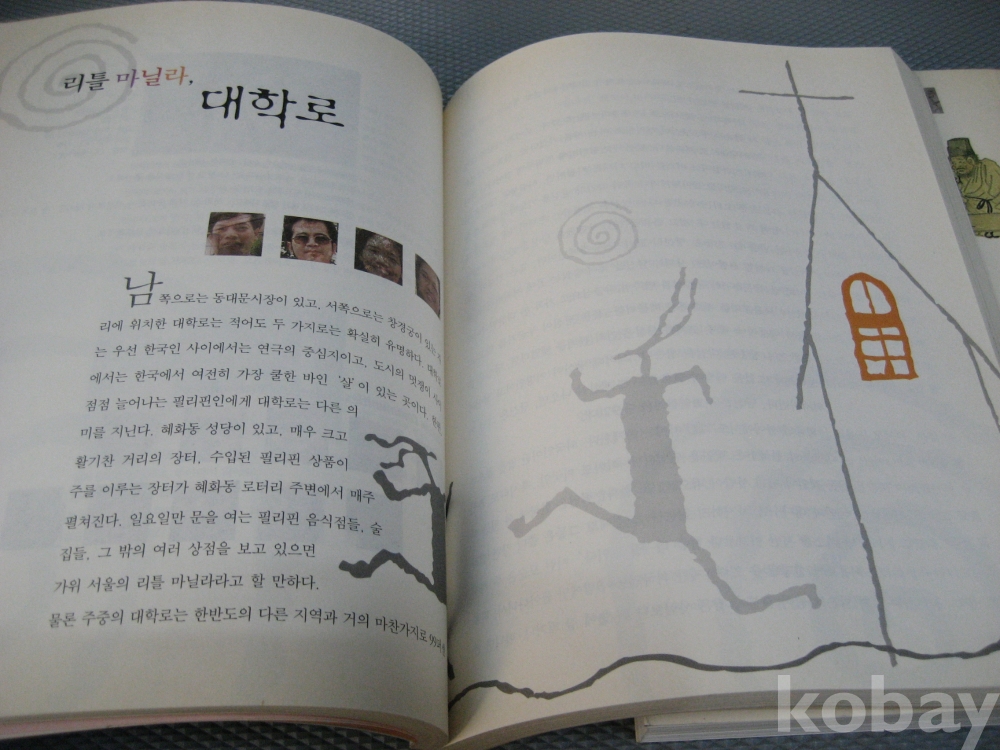 리틀 마닐라,
대학로
남쪽으로는 동대문시장이 있고, 서쪽으로는 창경궁이 있는
리에 위치한 대학로는 적어도 두 가지로는 확실히 유명하다.
는 우선 한국인 사이에서는 연극의 중심지이고, 도시의 멋쟁이
에서는 한국에서 여전히 가장 쿨한 바인 '살'이 있는 곳이다.
점점 늘어나는 필리핀인에게 대학로는 다른 의
미를 지닌다. 혜화동 성당이 있고, 매우 크고
활기찬 거리의 장터, 수입된 필리핀 상품이
주를 이루는 장터가 혜화동 로터리 주변에서 매주
펼쳐진다. 일요일만 문을 여는 필리핀 음식점들, 술
집들, 그 밖의 여러 상점을 보고 있으면
가위 서울의 리틀 마닐라라고 할 만하다.
물론 주중의 대학로는 한반도의 다른 지역과 거의 마찬가지로
kobay